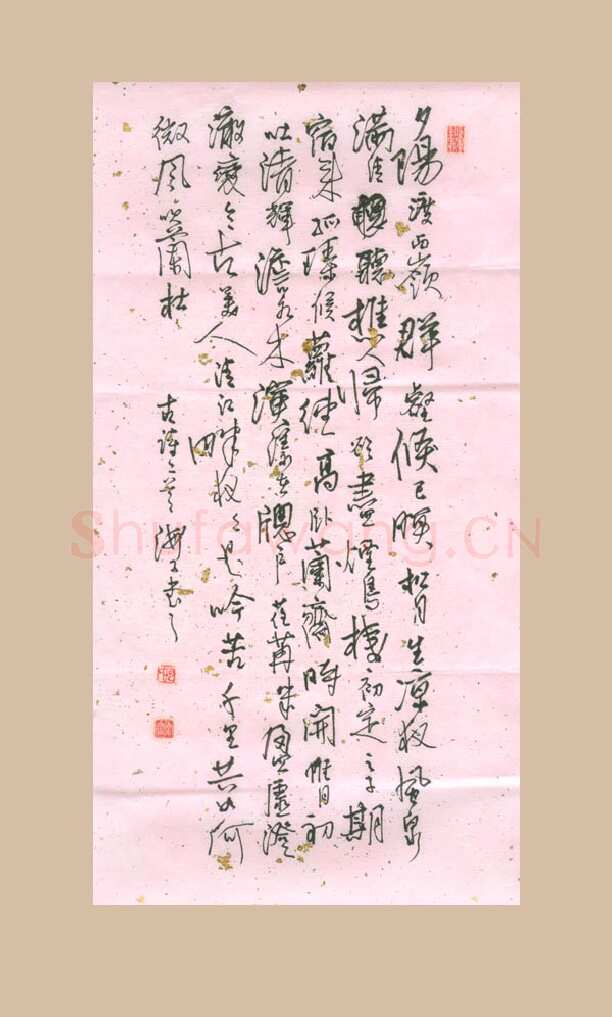 夕陽渡西嶺群壑倏已暝松月生凉夜風泉
滿清聽樵人歸欲盡煙鳥棲初定之子期
宿來孤琴候蘿徑高卧南齋時開帷月初
吐清輝澹水木演漾在窗户荏苒幾盈虛澄
澂變今古美人清江畔夜是吟苦千里共如何
微風吹蘭杜
古詩二首 書之
Shufawang.CN